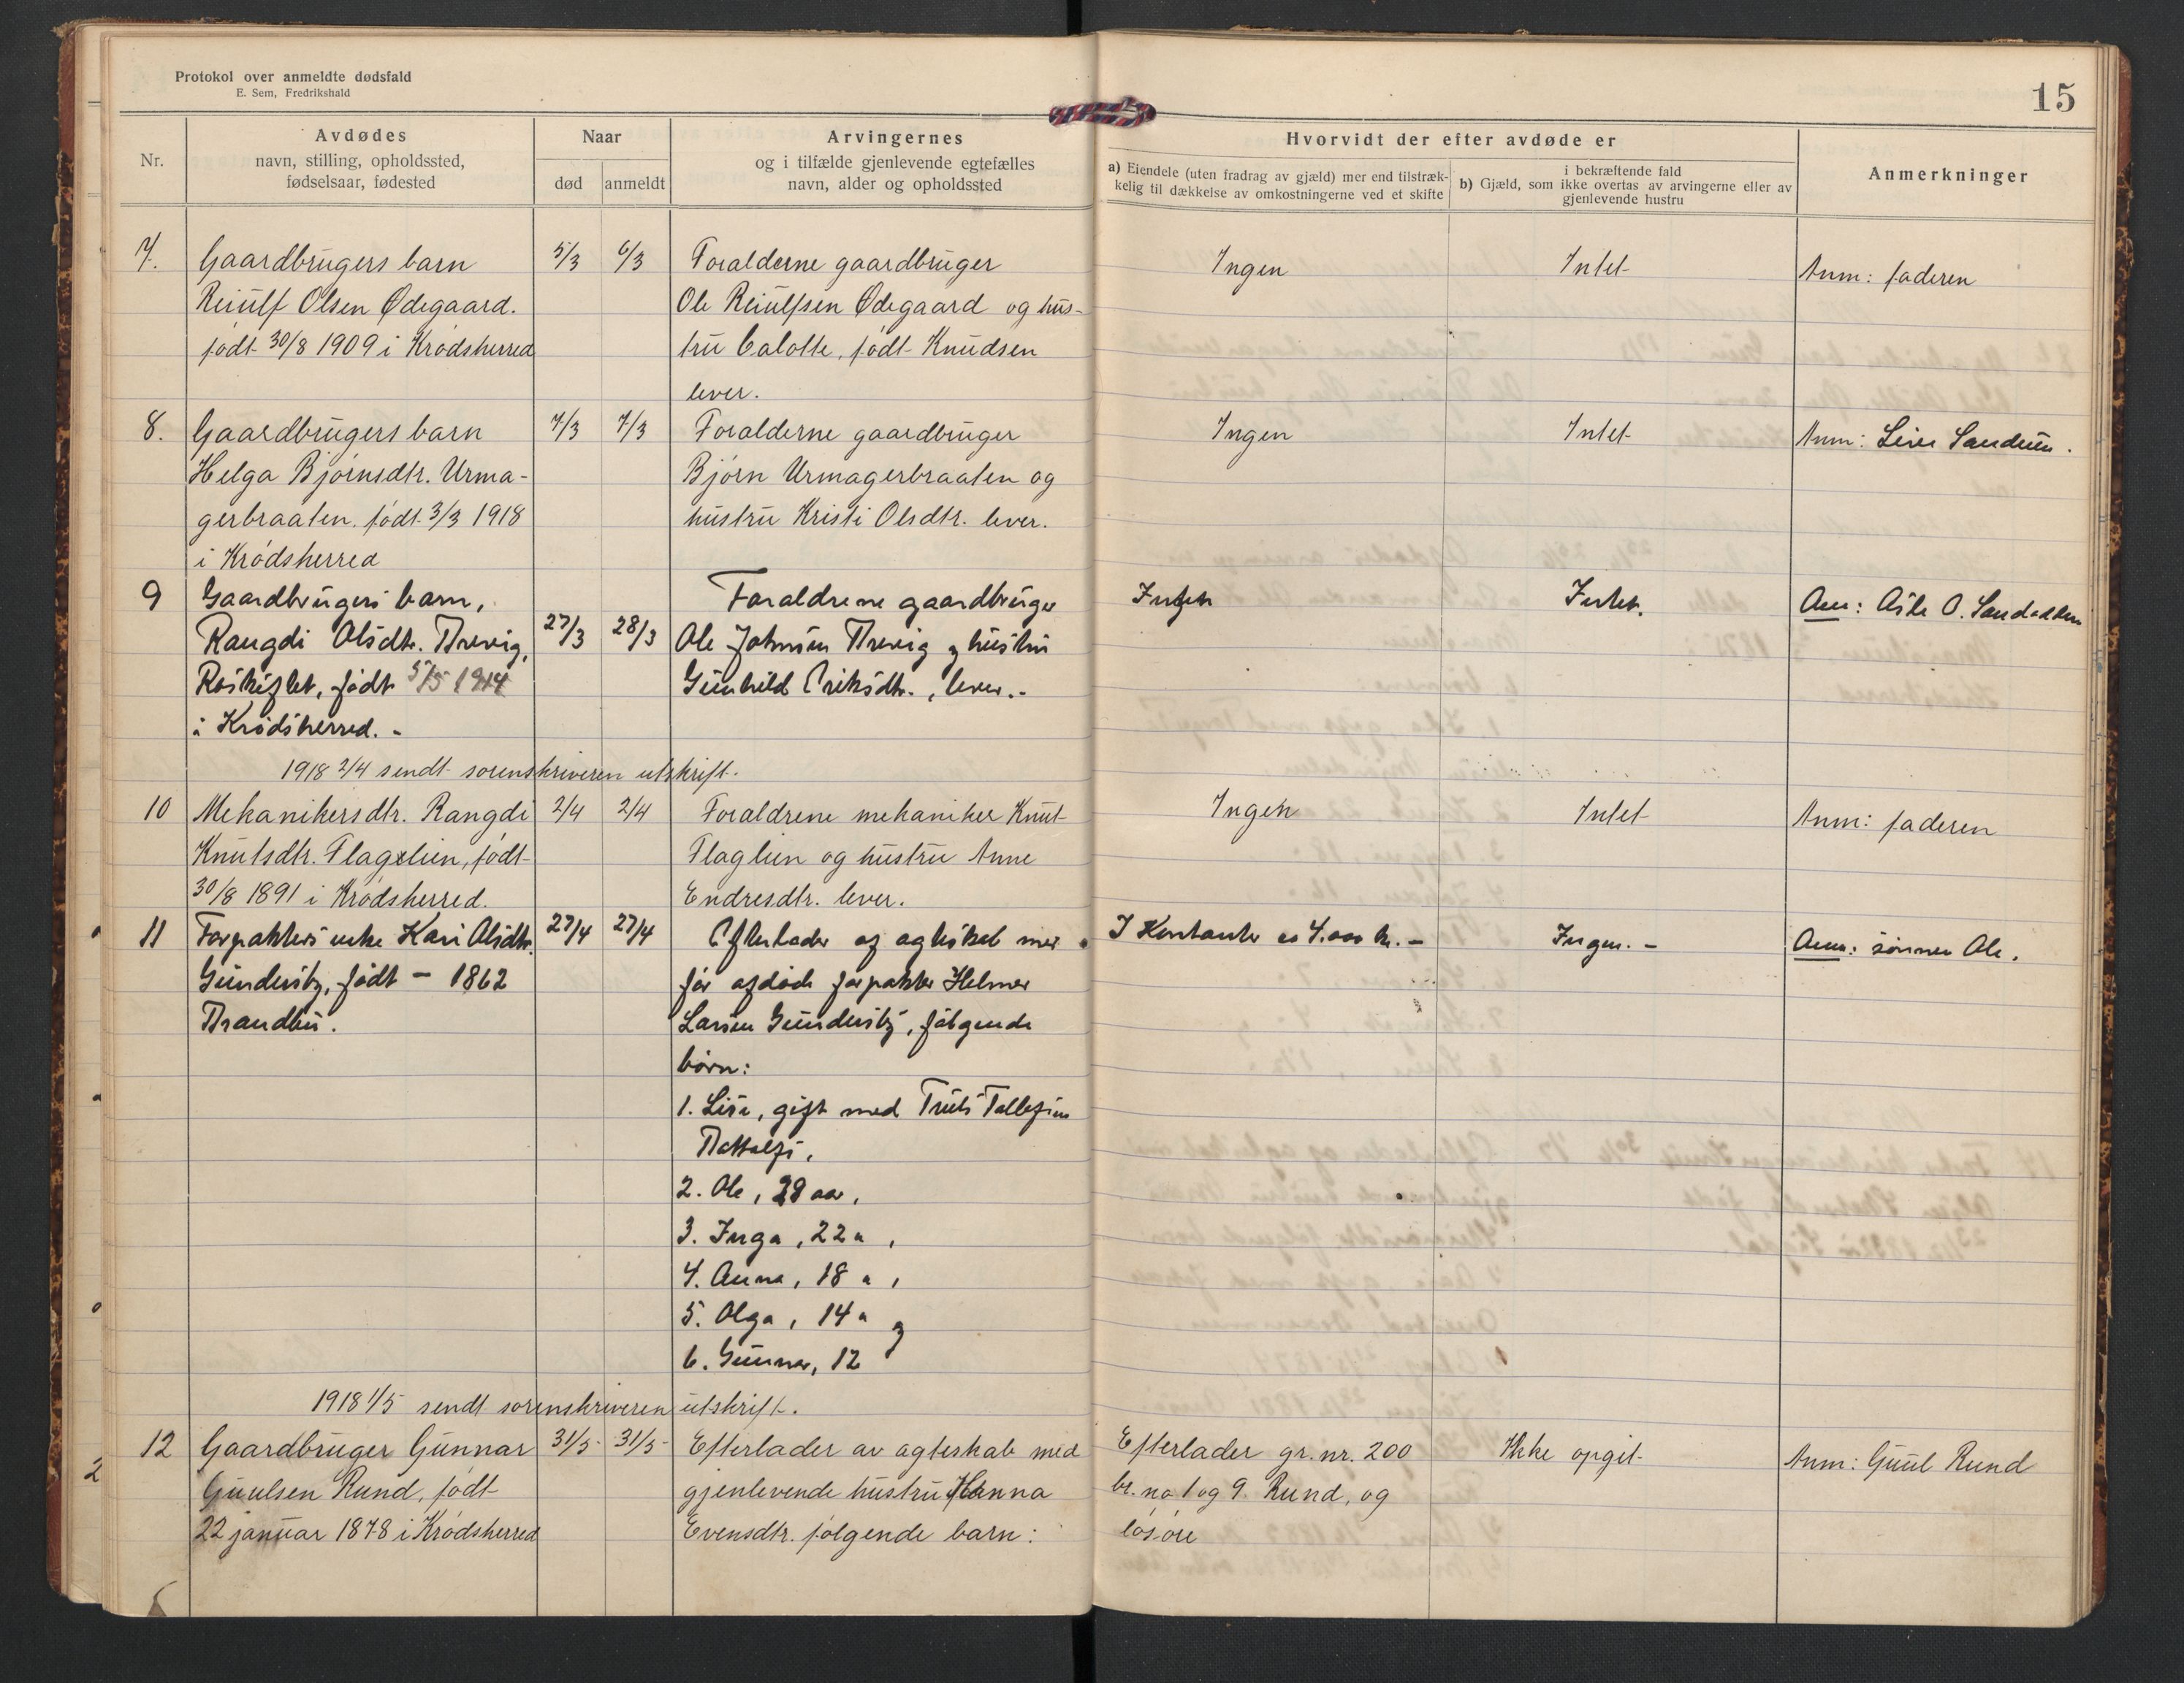 Protokol over anmeldte dødsfald
E. Sem, Fredrikshald
15
Nr.
Avdødes
navn, stilling, opholdssted,
fødselsaar, fødested
Naar
død anmeldt
Arvingernes
og i tilfælde gjenlevende egtefælles
navn, alder og opholdssted
Hvorvidt der efter avdøde er
a) Eiendele (uten fradrag av gjæld) mer end tilstræk-
kelig til dækkelse av omkostningerne ved et skifte
i bekræftende fald
b) Gjæld, som ikke overtas av arvingerne eller av
gjenlevende hustru
Anmerkninger
7. Gaardbrugers barn 5/3 6/3 Foralderne gaardbruger Ingen Intet Anm: faderen
Reiulf Olsen Ødegaard. Ole Reiulfsen Ødegaard og hus-
født 30/8 1909 i Krødsherred tru Calotte, født Knudsen
lever.
8. Gaardbrugers barn 7/3 7/3 Foralderne gaardbruger Ingen Intet Anm:
Helga Bjørnsdtr. Urma- Bjørn Urmagerbraaten og
gerbraaten, født 3/3 1918 hustru Kristi Olsdtr. lever.
i Krødsherred
9 Gaardbrugers barn, 27/3 28/3 Foraldrene gaardbruger Intet. Anm:
Rangdi Olsdtr. Ole Johnsen og hustru
født 5/5 1914 Gunhild Eriksdtr., lever.-
i Krødsherred. -
1918 2/4 sendt sorenskriveren utskrift.
10 Mekanikersdtr. Rangdi 2/4 2/4 Foraldrene mekaniker Knut Ingen Intet Anm: faderen
Knutsdtr. Flaglien, født Flaglien og hustru Anne
30/8 1891 i Krødsherred. Endresdtr. lever.
11 Forpakters enke Kari Olsdtr. 27/4 27/4 Efterlader af agteskab med I Kontanter ca 4.000 kr. - Ingen. - Anm: sønnen Ole.
Gundersby, født - 1862 før afdøde forpakter Helmer
Brandbu. Larsen Gundersby, følgende
børn:
1. Lisa, gift med Truls Tollefsen
2. Ole, 28 aar,
3. Inga, 22 " ,
4. Anna, 18 " ,
5. Olga, 14 " og
6. Gunnar, 12
1918 1/5 sendt sorenskriveren utskrift.
12 Gaardbruger Gunnar 31/5 31/5 Efterlader av agteskab med Efterlader gr. nr. 200 Ikke opgit Anm: Guul Rund
Guulsen Rund, født gjenlevende hustru Hanna br. no 1 og 9. Rund, og
22 januar 1878 i Krødsherred Evensdtr. følgende barn: løsøre
2